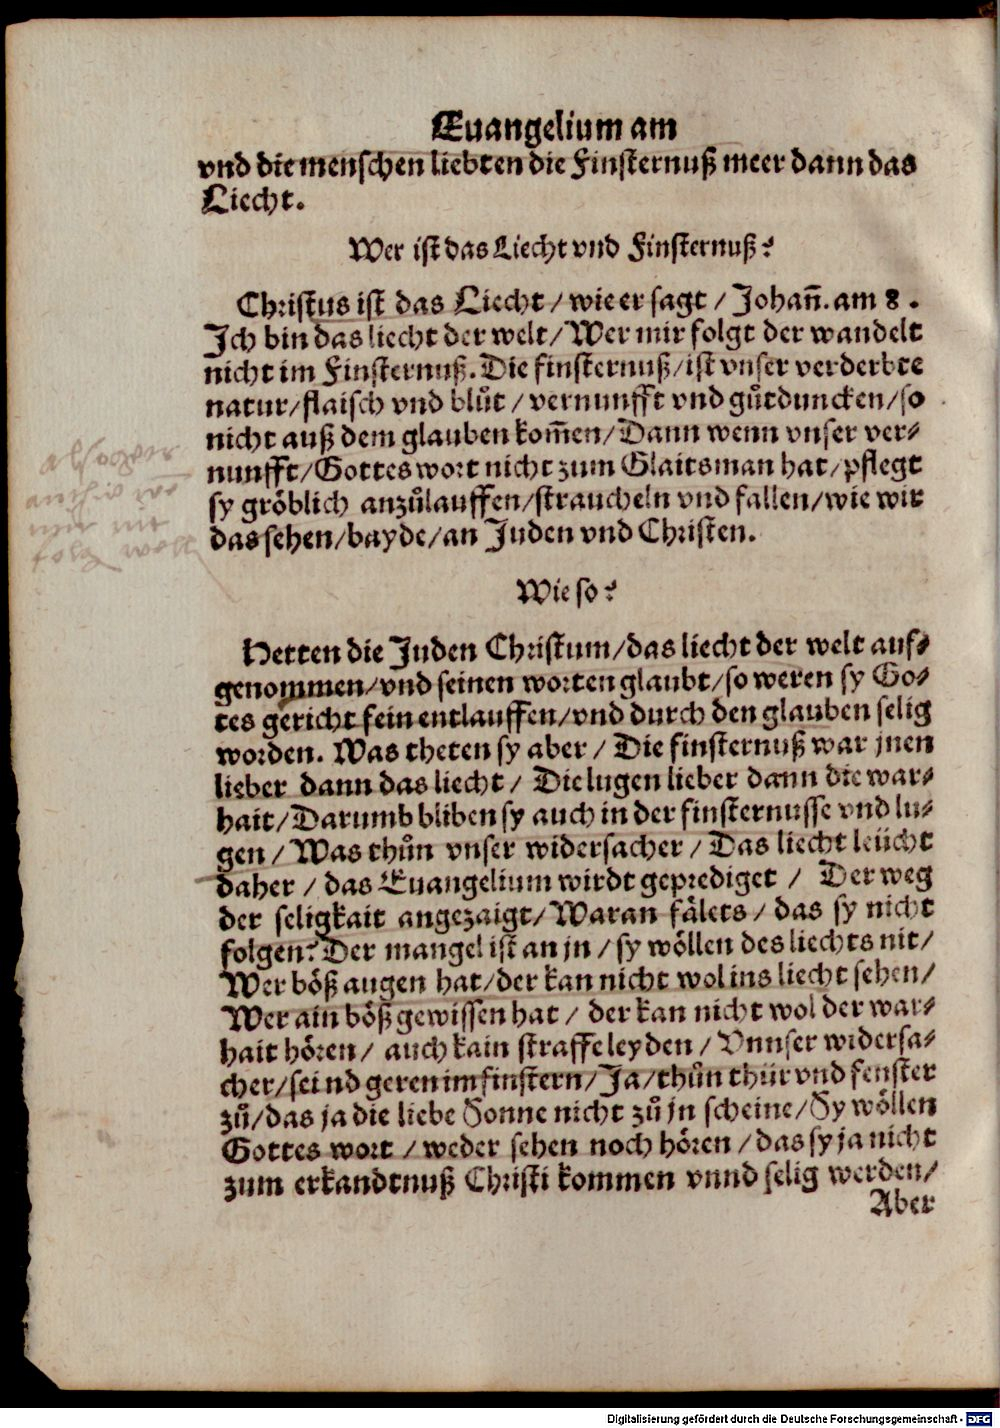 Euangelium am
vnd die menschen liebten die Finsternuß meer dann das
Liecht.
Wer ist das Liecht vnd Finsternuß?
Christus ist das Liecht / wie er sagt / Johañ. am 8.
Ich bin das liecht der welt / Wer mir folgt der wandelt
nicht im Finsternuß. Die finsternuß / ist vnser verderbte
natur / flaisch vnd blůt / vernunfft vnd gůtduncken / so
nicht auß dem glauben kom̄en / Dann wenn vnser ver⸗
nunfft / Gottes wort nicht zum Glaitsman hat / pflegt
sy gröblich anzůlauffen / straucheln vnd fallen / wie wir
das sehen / bayde / an Juden vnd Christen.
Wie so?
Hetten die Juden Christum / das liecht der welt auf⸗
genommen / vnd seinen worten glaubt / so weren sy Go⸗
tes gericht fein entlauffen / vnd durch den glauben selig
worden. Was theten sy aber / Die finsternuß war jnen
lieber dann das liecht / Die lugen lieber dann die war⸗
hait / Darumb bliben sy auch in der finsternusse vnd lu⸗
gen / Was thůn vnser widersacher / Das liecht leücht
daher / das Euangelium wirdt geprediget / Der weg
der seligkait angezaigt / Waran fälets / das sy nicht
folgen? Der mangel ist an jn / sy wöllen des liechts nit /
Wer böß augen hat / der kan nicht wol ins liecht sehen /
Wer ain böß gewissen hat / der kan nicht wol der war⸗
hait hören / auch kain straffe leyden / Vnnser widersa⸗
cher / seind geren im finstern / Ja / thůn thür vnd fenster
zů / das ja die liebe Sonne nicht zů jn scheine / Sy wöllen
Gottes wort / weder sehen noch hören / das sy ja nicht
zum erkandtnuß Christi kommen vnnd selig werden /
Aber
Digitalisierung gefördert durch die Deutsche Forschungsgemeinschaft - DFG